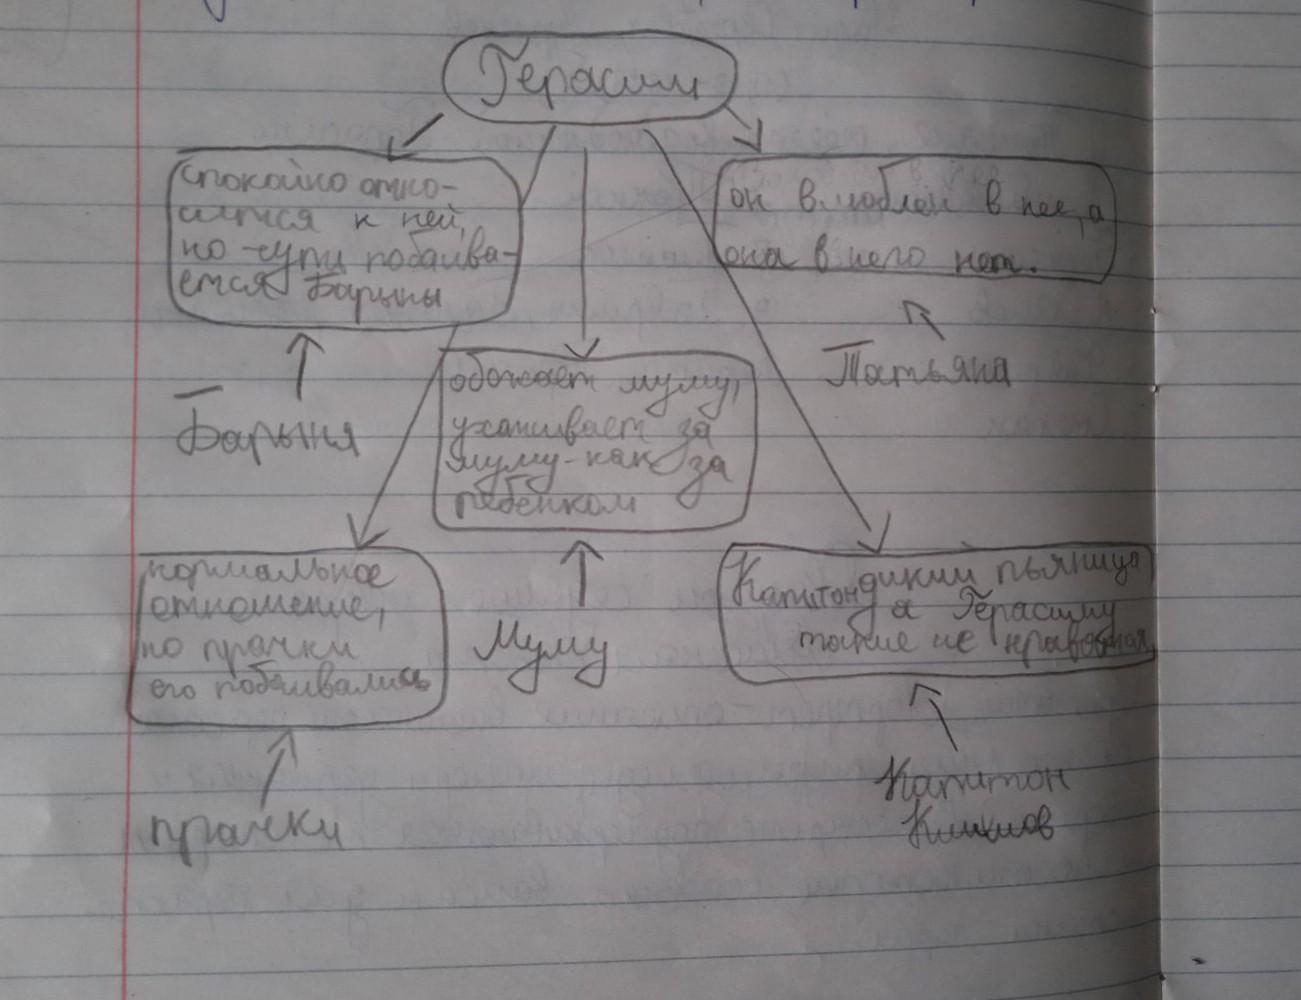 Герасим
спокойно отно-
сится к ней,
но чуть побаива-
ется Барыны
он влюблён в нее, а
она в него нет.
Барыня
Татьяна
обожает муму,
ухаживает за
муму-как за
ребёнком
нормальное
отношение,
но прачки
его побаивались
Муму
Капитон дикий пьяница
а Герасиму
такие не нравятся
прачки
Капитон
Климов